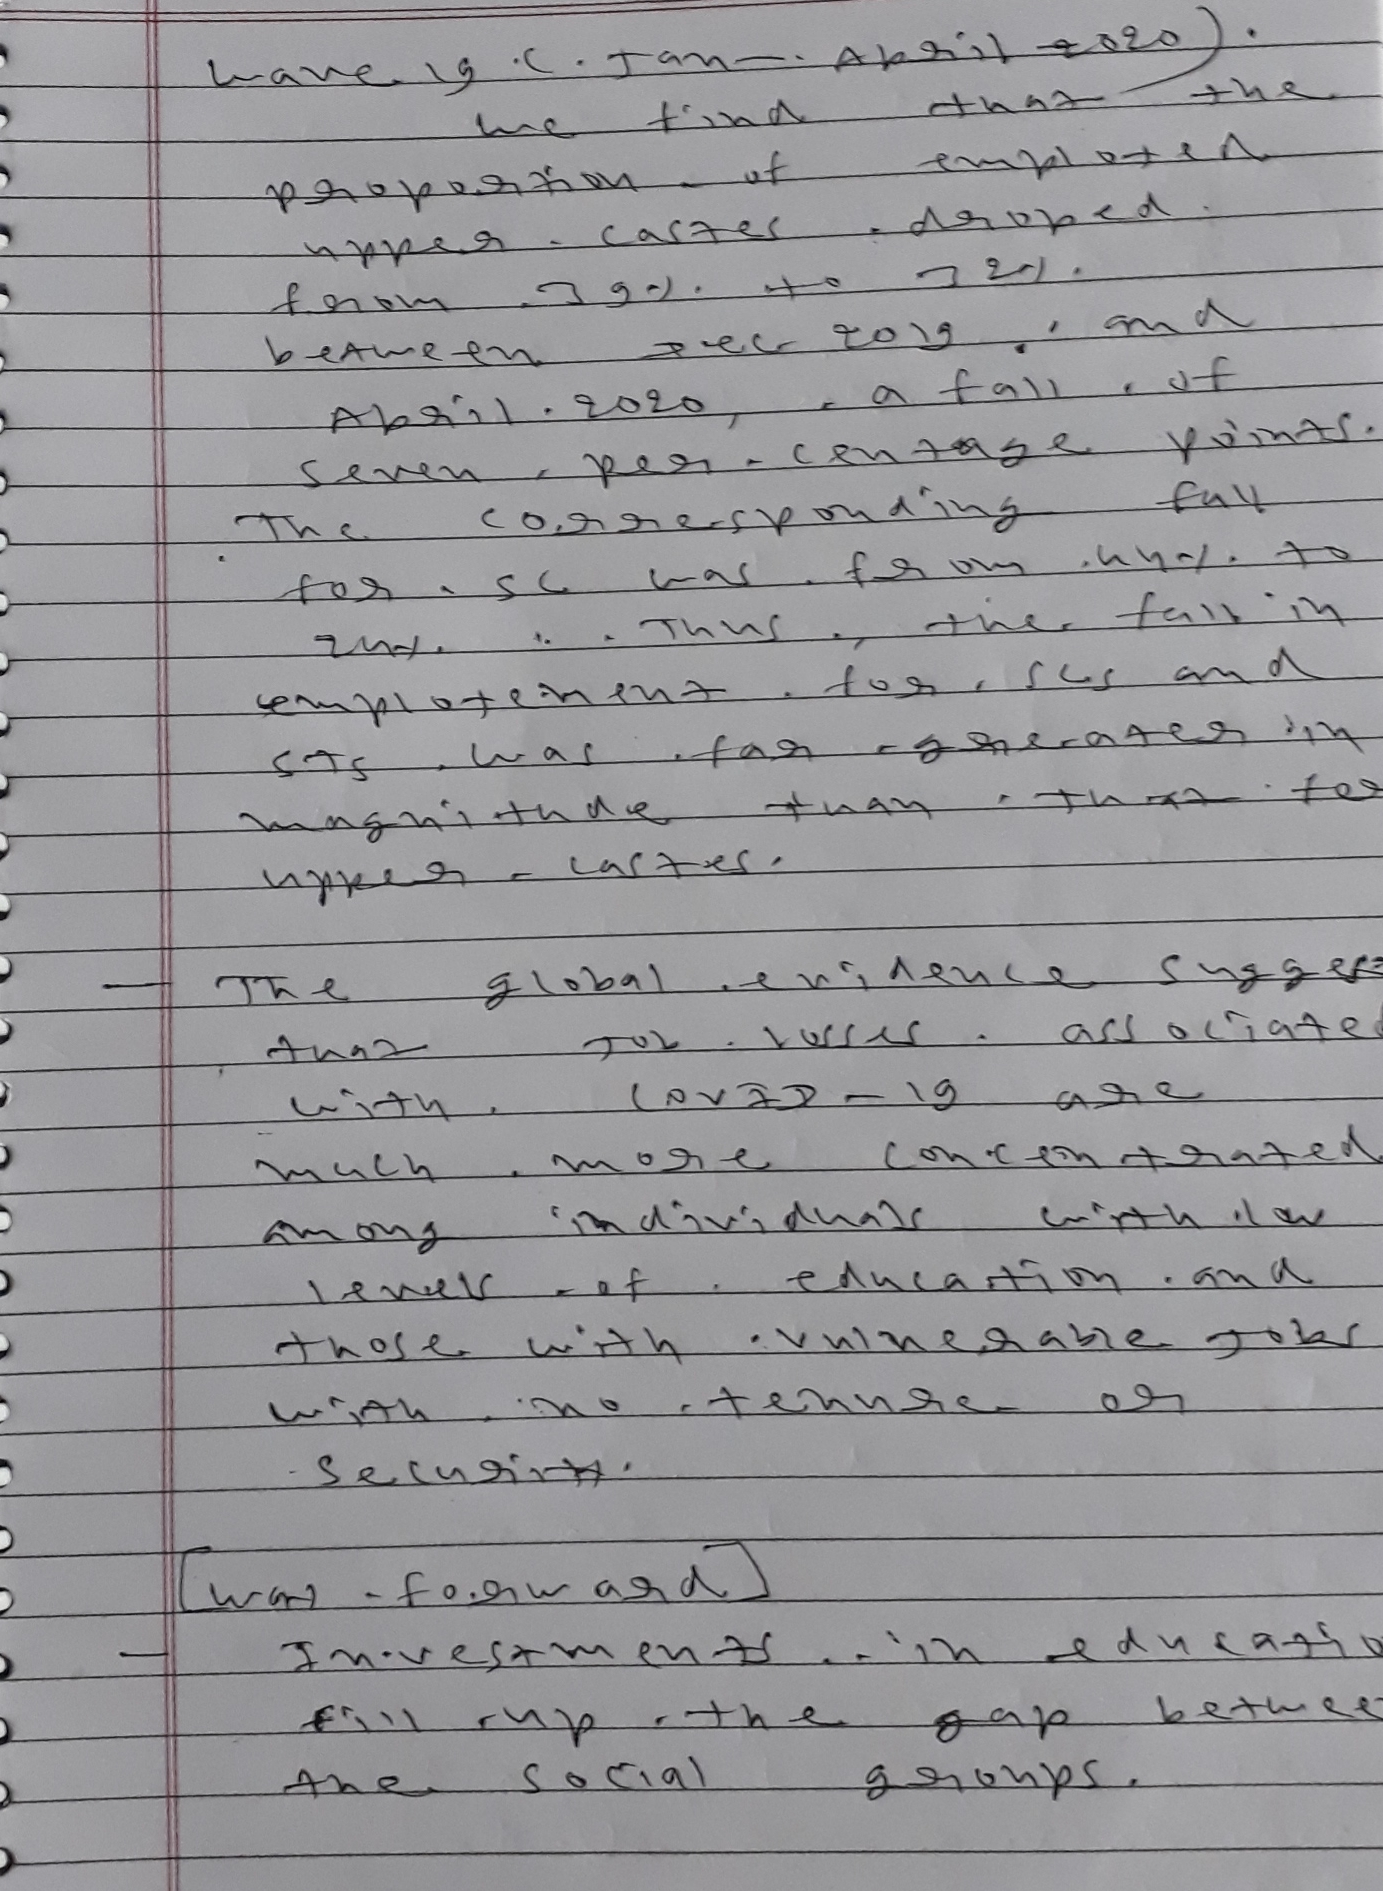 wave 19 (Jan - April 2020).
we find that the
proportion of emploted
upper - castes droped
from 39% to 32%.
between Dec 2019, and
April 2020, a fall of
seven per-centage points.
The corresponding fall
for SC was from 44% to
24%. Thus, the fall in
emplotement for SCs and
STs was far greater in
magnitude than that for
upper - castes.
— The global evidence sugges
that Job losses associated
with COVID - 19 are
much more concentrated
among individuals with low
levels of education and
those with vulnerable Jobs
with no tenure or
security.
[Way - forward]
— Investments in educatio
fill up the gap betwee
the social groups.